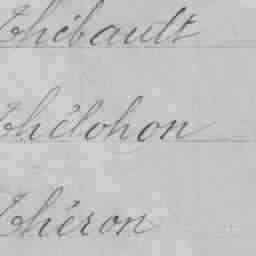 Thébault
Thélohon
Théron